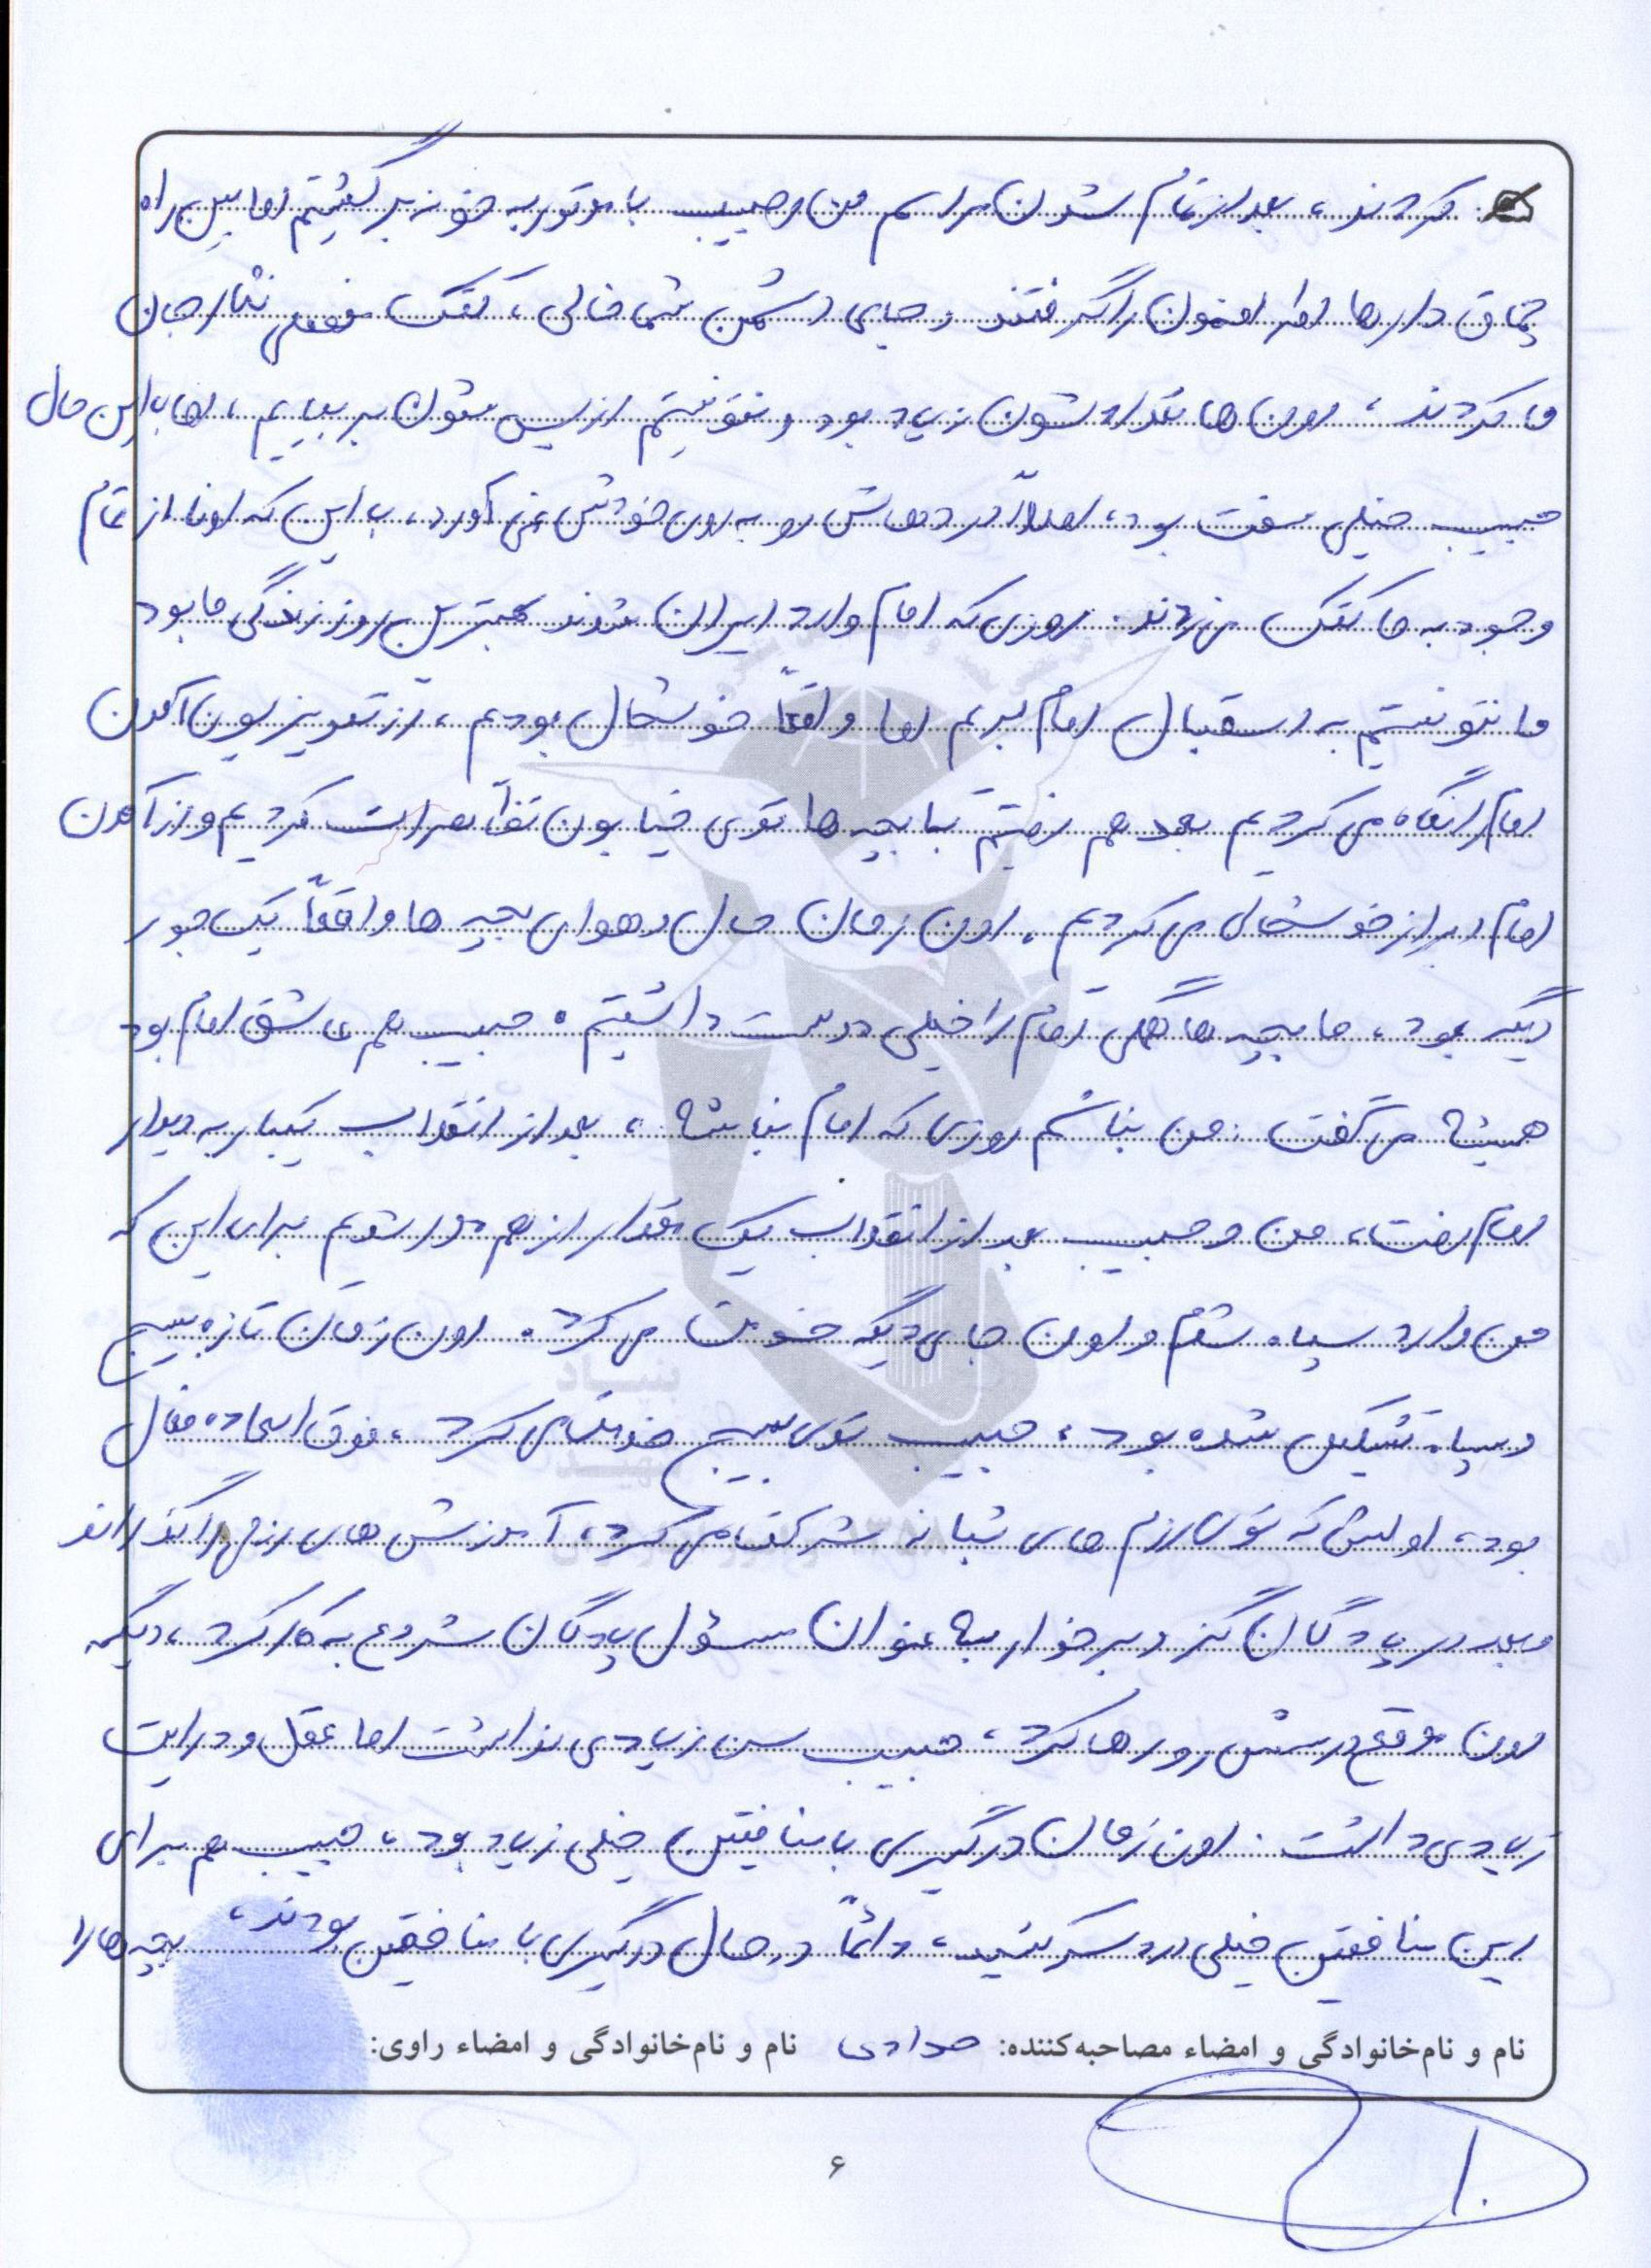 کردند، بعد از تمام شدن مراسم من و حبیب با موتور به خونه برگشتیم اما بین راه
چماق دارها اطرافمون را گرفتند و جای دشمن شما خالی، کتک مفصلی نثار جان
ما کردند، اون ها تعدادشون زیاد بود و نتونستیم از پس شون بر بیایم، اما با این حال
حبیب خیلی سفت بود، اصلاً درد هاش رو به روی خودش نمی آورد، با این که اونا از تمام
وجود به ما کتک می زدند. روزی که امام وارد ایران شدند بهترین روز زندگی ما بود
ما نتونستیم به استقبال امام بریم اما واقعاً خوشحال بودیم، از تلویزیون آمدن
امام را نگاه می کردیم بعد هم رفتیم با بچه ها توی خیابون تظاهرات کردیم و از آمدن
امام ابراز خوشحالی می کردیم. اون زمان حال و هوای بچه ها واقعاً یک جور
دیگه بود، ما بچه ها همگی امام را خیلی دوست داشتیم. حبیب هم عاشق امام بود
همیشه می گفت: من نباشم روزی که امام نباشه، بعد از انقلاب یکبار به دیدار
امام رفت، من و حبیب بعد از انقلاب یک مقدار از هم دور شدیم برای این که
من وارد سپاه شدم و اون جای دیگه خدمت می کرد. اون زمان تازه بسیج
و سپاه تشکیل شده بود، حبیب توی بسیج خدمت می کرد، فوق العاده فعال
بود، اولش که توی رزم های شبانه شرکت می کرد، آموزش های رزمی را گذراند
و بعد در پادگان گز و برخوار به عنوان مسئول پادگان شروع به کار کرد، دیگه
اون موقع درسش رو رها کرد، حبیب سن زیادی نداشت اما عقل و درایت
زیادی داشت. اون زمان درگیری با منافقین خیلی زیاد بود، حبیب هم برای
این منافقین خیلی دردسر کشید، دائماً در حال درگیری با منافقین بودند، بچه ها را
نام و نام‌خانوادگی و امضاء مصاحبه‌کننده: مرادی نام و نام‌خانوادگی و امضاء راوی:
۶